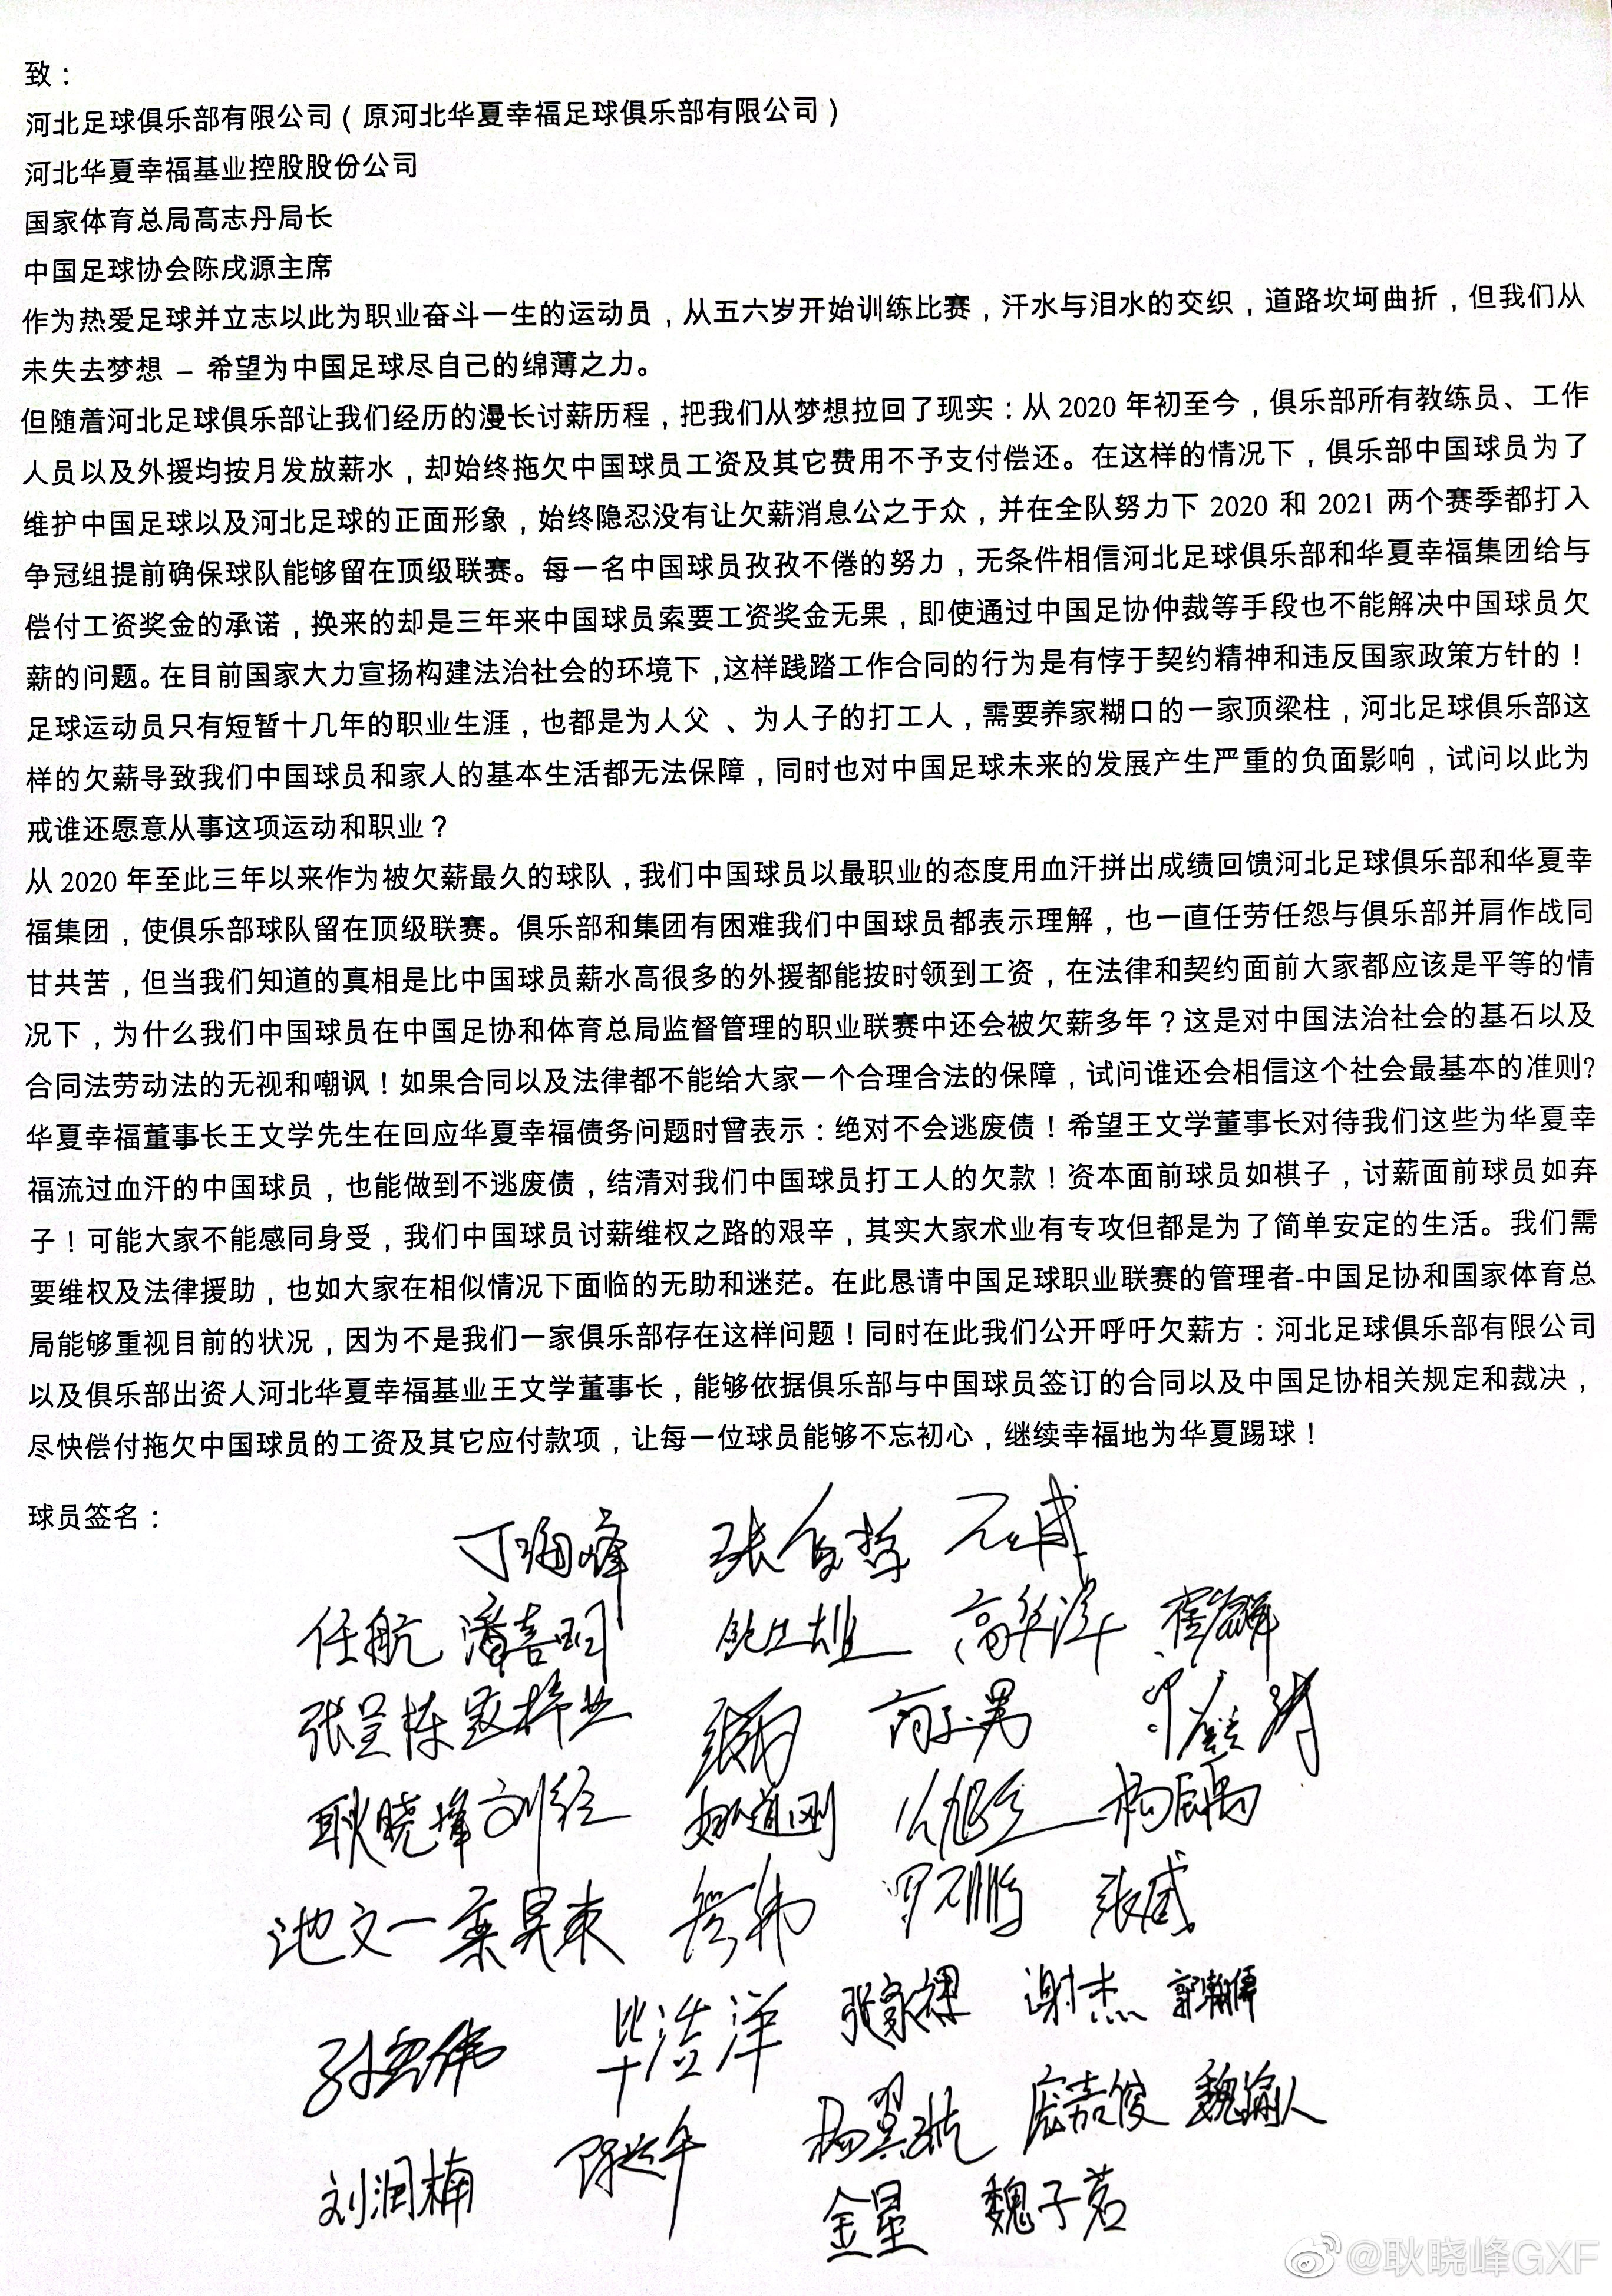 致：
河北足球俱乐部有限公司（原河北华夏幸福足球俱乐部有限公司）
河北华夏幸福基业控股股份公司
国家体育总局高志丹局长
中国足球协会陈戌源主席
作为热爱足球并立志以此为职业奋斗一生的运动员，从五六岁开始训练比赛，汗水与泪水的交织，道路坎坷曲折，但我们从
未失去梦想 – 希望为中国足球尽自己的绵薄之力。
但随着河北足球俱乐部让我们经历的漫长讨薪历程，把我们从梦想拉回了现实：从 2020 年初至今，俱乐部所有教练员、工作
人员以及外援均按月发放薪水，却始终拖欠中国球员工资及其它费用不予支付偿还。在这样的情况下，俱乐部中国球员为了
维护中国足球以及河北足球的正面形象，始终隐忍没有让欠薪消息公之于众，并在全队努力下 2020 和 2021 两个赛季都打入
争冠组提前确保球队能够留在顶级联赛。每一名中国球员孜孜不倦的努力，无条件相信河北足球俱乐部和华夏幸福集团给与
偿付工资奖金的承诺，换来的却是三年来中国球员索要工资奖金无果，即使通过中国足协仲裁等手段也不能解决中国球员欠
薪的问题。在目前国家大力宣扬构建法治社会的环境下 ,这样践踏工作合同的行为是有悖于契约精神和违反国家政策方针的！
足球运动员只有短暂十几年的职业生涯，也都是为人父 、为人子的打工人，需要养家糊口的一家顶梁柱，河北足球俱乐部这
样的欠薪导致我们中国球员和家人的基本生活都无法保障，同时也对中国足球未来的发展产生严重的负面影响，试问以此为
戒谁还愿意从事这项运动和职业？
从 2020 年至此三年以来作为被欠薪最久的球队，我们中国球员以最职业的态度用血汗拼出成绩回馈河北足球俱乐部和华夏幸
福集团，使俱乐部球队留在顶级联赛。俱乐部和集团有困难我们中国球员都表示理解，也一直任劳任怨与俱乐部并肩作战同
甘共苦，但当我们知道的真相是比中国球员薪水高很多的外援都能按时领到工资，在法律和契约面前大家都应该是平等的情
况下，为什么我们中国球员在中国足协和体育总局监督管理的职业联赛中还会被欠薪多年？这是对中国法治社会的基石以及
合同法劳动法的无视和嘲讽！如果合同以及法律都不能给大家一个合理合法的保障，试问谁还会相信这个社会最基本的准则?
华夏幸福董事长王文学先生在回应华夏幸福债务问题时曾表示：绝对不会逃废债！希望王文学董事长对待我们这些为华夏幸
福流过血汗的中国球员，也能做到不逃废债，结清对我们中国球员打工人的欠款！资本面前球员如棋子，讨薪面前球员如弃
子！可能大家不能感同身受，我们中国球员讨薪维权之路的艰辛，其实大家术业有专攻但都是为了简单安定的生活。我们需
要维权及法律援助，也如大家在相似情况下面临的无助和迷茫。在此恳请中国足球职业联赛的管理者-中国足协和国家体育总
局能够重视目前的状况，因为不是我们一家俱乐部存在这样问题！同时在此我们公开呼吁欠薪方：河北足球俱乐部有限公司
以及俱乐部出资人河北华夏幸福基业王文学董事长，能够依据俱乐部与中国球员签订的合同以及中国足协相关规定和裁决，
尽快偿付拖欠中国球员的工资及其它应付款项，让每一位球员能够不忘初心，继续幸福地为华夏踢球！
球员签名：
丁海峰
任航 潘喜明 鲍亚雄 高华泽
张呈栋
耿晓峰 刘经 姚道刚 杨
池文一 栾昊东 张威
毕洁洋 张家祺 谢杰
庞嘉俊 魏
刘润楠
金星 魏子茗
@耿晓峰GXF